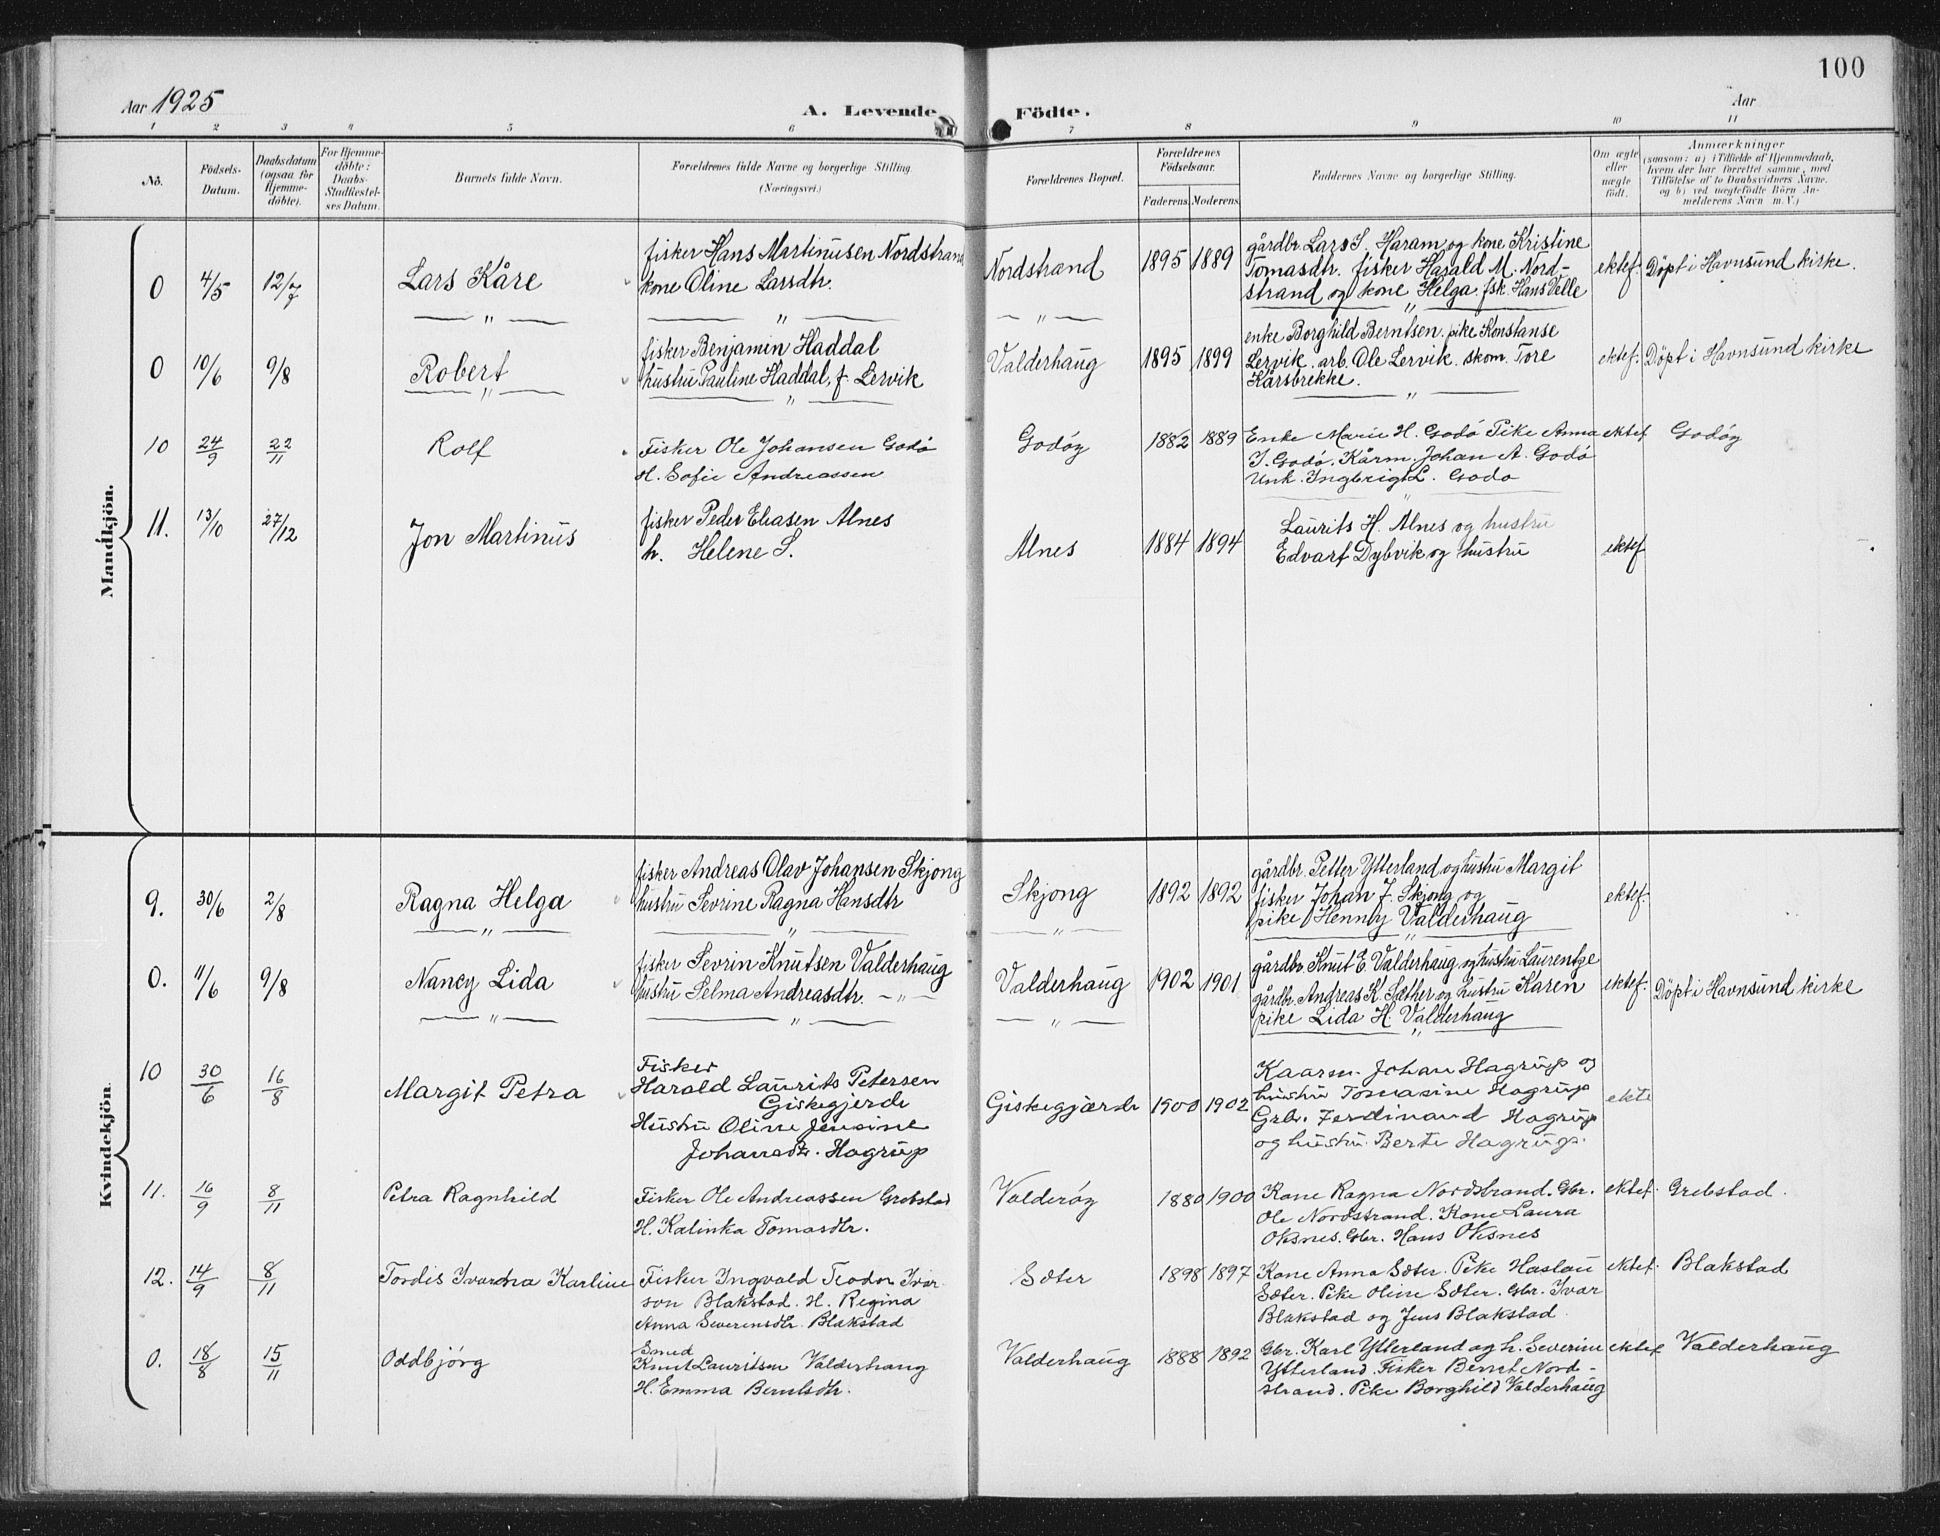 100
Aar 1925
A. Levende
Födte.
Aar
1 2 3 4 5 6 7 8 9 10 11
No.
Födsels-
Datum.
Daabsdatum
(ogsaa for
Hjemme-
döbte).
For Hjemme-
döbte:
Daabs-
Stadfestel-
ses Datum.
Barnets fulde Navn.
Forældrenes fulde Navne og borgerlige Stilling.
(Næringsvei.)
Forældrenes Bopæl.
Forældrenes
Födselsaar.
Faderens. Moderens.
Faddernes Navne og borgerlige Stilling.
Om ægte
eller
uægte
födt.
Anmærkninger
(saasom: a) i Tilfælde af Hjemmedaab,
hvem der har forrettet samme, med
Tilföielse af to Daabsvidners Navne.
og b) ved uægtefödte Börn An-
melderens Navn m. V.)
Mandkjön.
0 4/5 12/7 Lars Kåre
fisker Hans Martinusen Nordstrand
kone Oline Larsdtr.
Nordstrand 1895 1889
gårdbr. Lars S. Haram og kone Kristine
Tomasdtr. fisker Harald M. Nord-
strand og kone Helga. fsk. Hans Valle
ektef. Döpt i Havnsund kirke.
— " — — " — — " — "
0 10/6 9/8 Robert
fisker Benjamin Haddal
hustru Pauline Haddal, f. Lervik
Valderhaug 1895 1899
enke Borghild Berntsen. pike Konstanse
Lervik. arb. Ole Lervik. skom. Tore
Kårsbrekke.
ektef. Döpt i Havnsund kirke
— " — — " — — " —
10 24/9 22/11 Rolf
Fisker Ole Johansen Godö
H. Sofie Andreassen
Godöy 1882 1889
Enke Marie H. Godö Pike Anna
J. Godö. Kårm. Johan A. Godö
Unk. Ingbrigt L. Godö
ektef Godöy
"
11. 13/10 27/12 Jon Martinus
fisker Peder Eliasen Alnes
h. Helene S.
Alnes 1884 1894
Laurits H. Alnes og hustru
Edvart Dybvik og hustru
ektef
Kvindekjön.
9. 30/6 2/8 Ragna Helga
fisker Andreas Olav Johansen Skjong
hustru Sevrine Ragna Hansdtr
Skjong 1892 1892
gårdbr. Petter Ytterland og hustru Margit
fisker Johan J. Skjong og
pike Henny Valderhaug
ektef.
— " — — " — — " — "
0. 11/6 9/8 Nancy Lida
fisker Sevrin Knutsen Valderhaug
hustru Selma Andreasdtr. — " —
Valderhaug 1902 1901
gårdbr. Knut E. Valderhaug og hustru Laurentse
gårdbr. Andreas K. Sæther og hustru Karen
pike Lida H. Valderhaug
ektef. Döpt i Havnsund kirke
— " — — " — — " — "
10 30/6 16/8 Margit Petra
Fisker
Harald Laurits Petersen
Giskegjerde
Hustru Oline Jensine
Johansdtr. Hagrup
Giskegjærde 1900 1902
Kaarm. Johan Hagrup og
hustru Tomasine Hagrup
Grbr. Ferdinand Hagrup
og hustru Berte Hagrup.
ekte
11. 16/9 8/11 Petra Ragnhild
Fisker Ole Andreassen Grebstad
H. Kalinka Tomasdtr.
Valderöy 1880 1900
Kone Ragna Nordstrand. Gbr.
Ole Nordstrand. Kone Laura
Oksnes. Gbr. Hans Oksnes
ektef. Grebstad.
12. 14/9 8/11 Tordis Ivarda Karline
Fisker Ingvald Teodor Ivar
son Blakstad. H. Regina
Anna Severinsdtr. Blakstad
Sæter 1898 1897
Kone Anna Sæter. Pike Haslau
Sæter. Pike Oline Sæter. Gbr. Ivar
Blakstad og Jens Blakstad
ektef. Blakstad
0. 18/8 15/11 Oddbjörg
Smed
Knut Lauritsen Valderhaug
H. Emma Berntsdtr.
Valderhaug 1888 1892
Gbr. Karl Ytterland og h. Severine
Ytterland. Fisker Bernt Nord-
strand. Pike Borghild Valderhaug
ektef Valderhaug